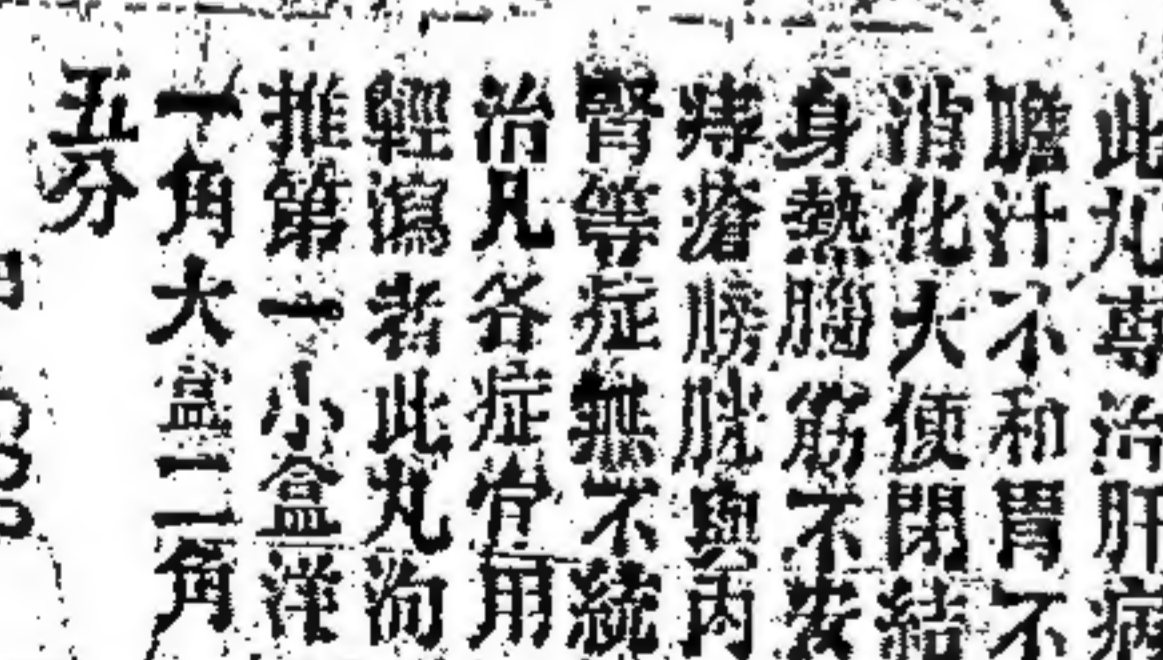 此丸專治肝病
膽汁不和胃不
消化大便閉結
身熱腦筋不安
痔瘡膀胱與內
腎等症無不統
治凡各症宜用
輕瀉者此丸洵
推第一小盒洋
一角大盒二角
五分